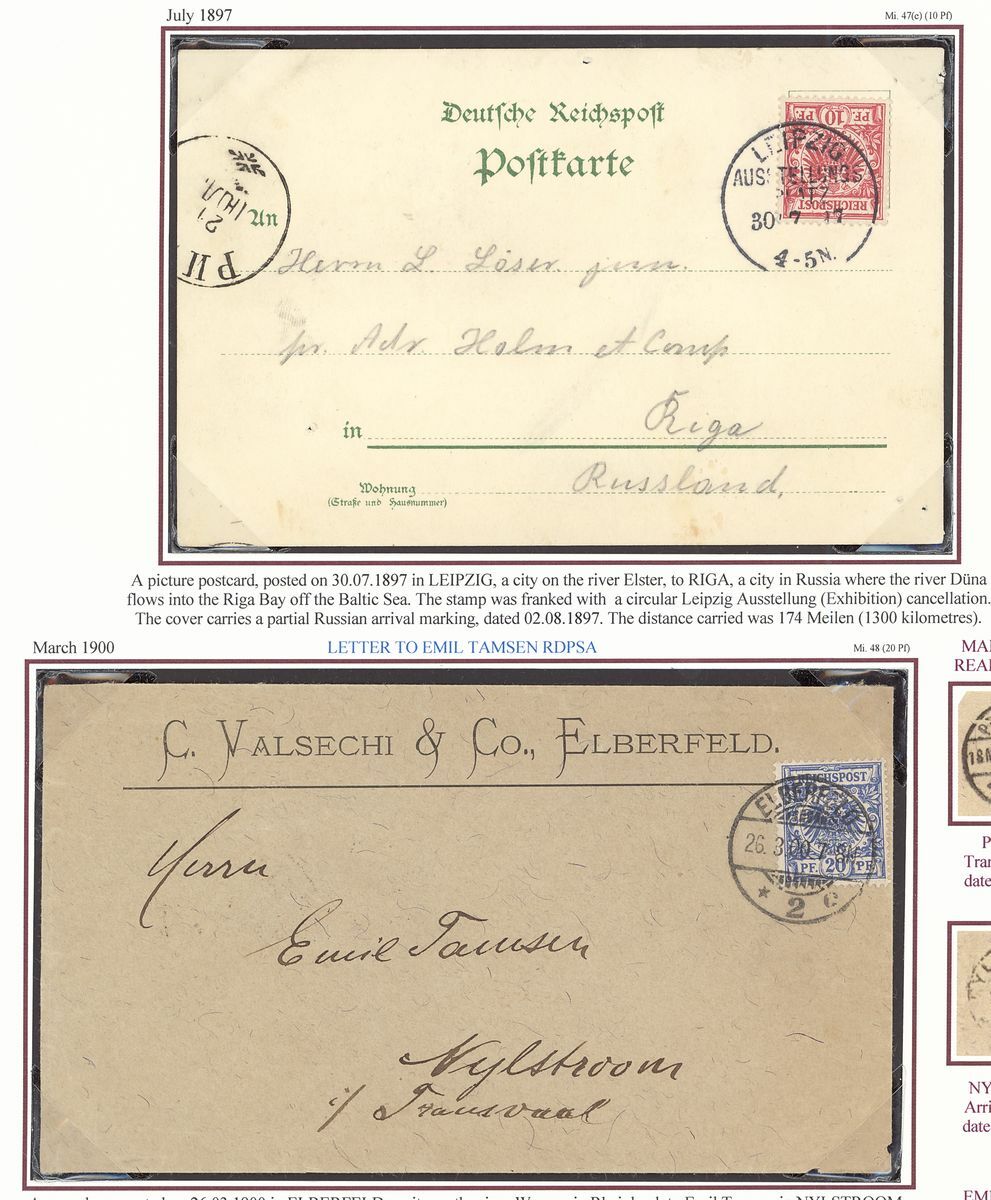 July 1897
Mi. 47(e) (10 Pf)
Deutsche Reichspost
Postkarte
PF 10 PF
REICHSPOST
LEIPZIG
AUSSTELLUNGS
30 7
4-5N.
21
ІЮЛ.
An
Herrn L. Löser jun.
pr. Adr. Holm et Comp
in Riga
Wohnung Russland,
(Straße und Hausnummer)
A picture postcard, posted on 30.07.1897 in LEIPZIG, a city on the river Elster, to RIGA, a city in Russia where the river Düna
flows into the Riga Bay off the Baltic Sea. The stamp was franked with a circular Leipzig Ausstellung (Exhibition) cancellation.
The cover carries a partial Russian arrival marking, dated 02.08.1897. The distance carried was 174 Meilen (1300 kilometres).
March 1900
LETTER TO EMIL TAMSEN RDPSA
Mi. 48 (20 Pf)
C. VALSECHI & CO., ELBERFELD.
REICHSPOST
PF. 20 PF.
ELBERFELD
26. 3.00
* 2 c
Herrn
Emil Tamsen
Nylstroom
i/ Transvaal